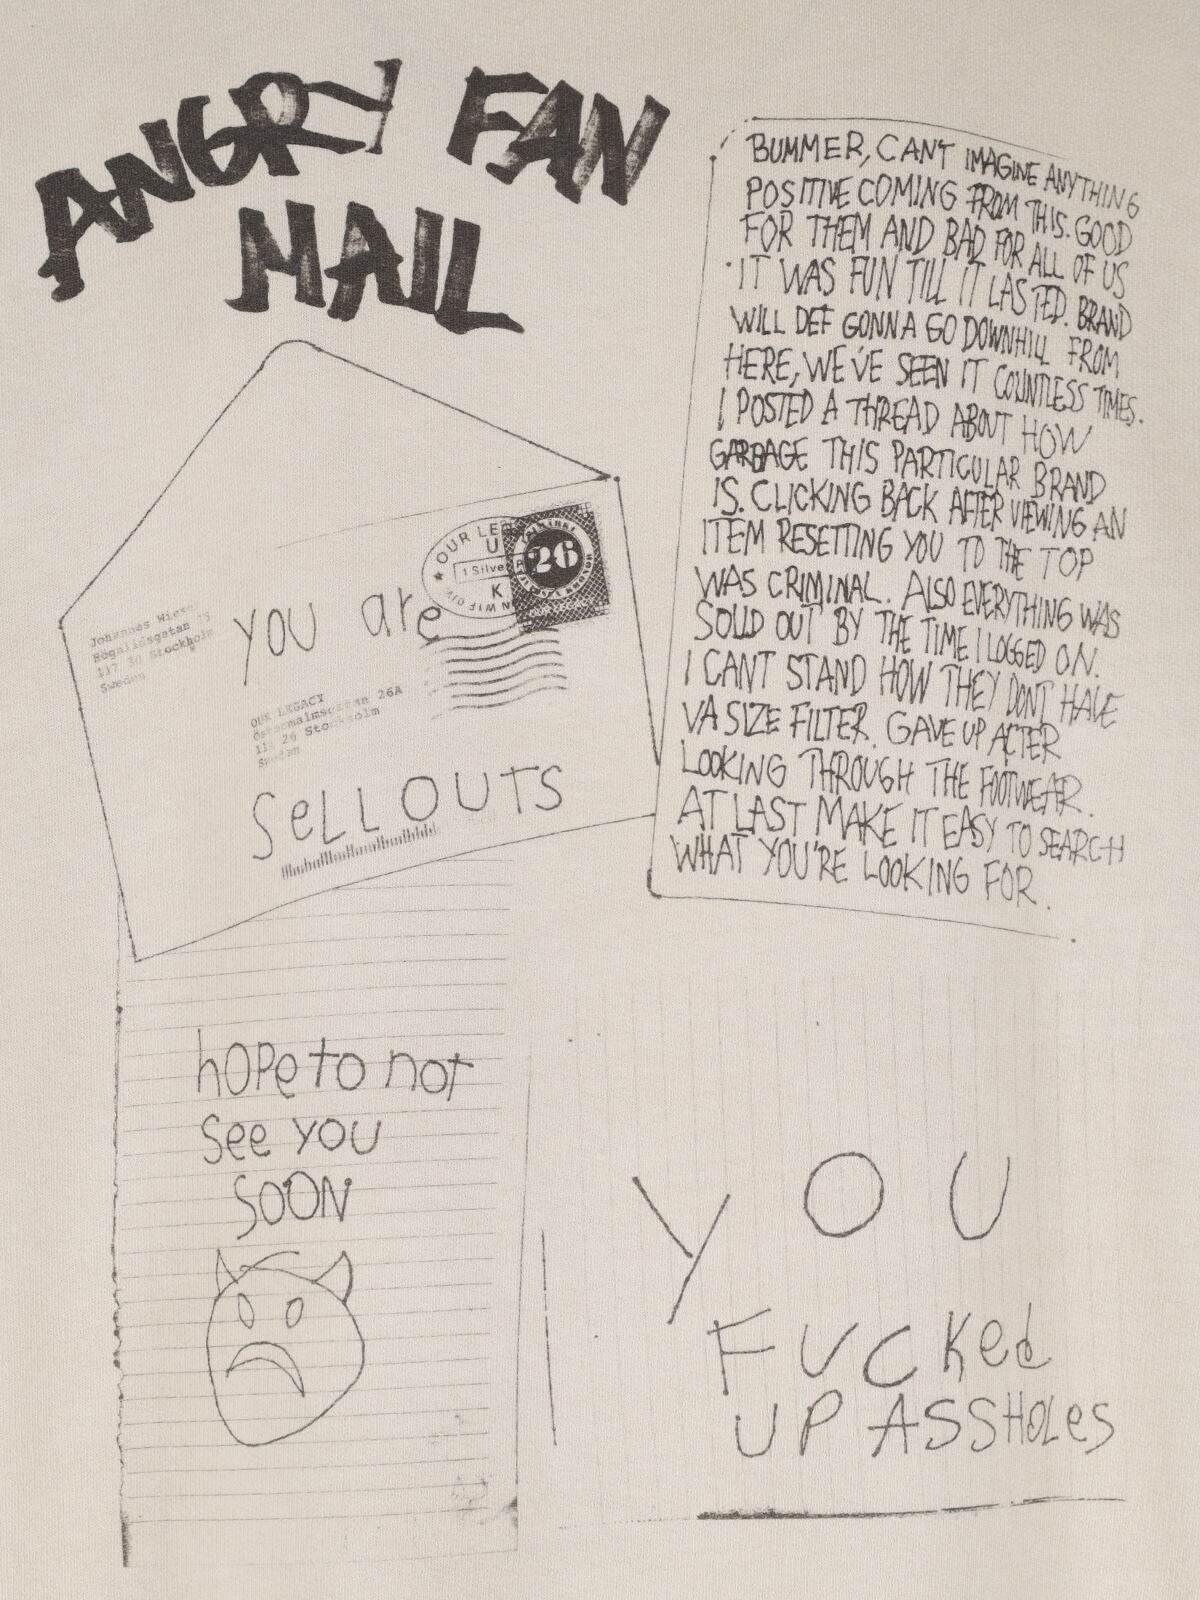 ANGRY FAN
MAIL
BUMMER, CANT IMAGINE ANYTHING
POSITIVE COMING FROM THIS. GOOD
FOR THEM AND BAD FOR ALL OF US
IT WAS FUN TILL IT LASTED. BRAND
WILL DEF GONNA GO DOWNHILL FROM
HERE, WE'VE SEEN IT COUNTLESS TIMES.
I POSTED A THREAD ABOUT HOW
GARBAGE THIS PARTICULAR BRAND
IS. CLICKING BACK AFTER VIEWING AN
ITEM RESETTING YOU TO THE TOP
WAS CRIMINAL. ALSO EVERYTHING WAS
SOLD OUT BY THE TIME I LOGGED ON.
I CANT STAND HOW THEY DONT HAVE
VA SIZE FILTER. GAVE UP AFTER
LOOKING THROUGH THE FOOTWEAR.
AT LAST MAKE IT EASY TO SEARCH
WHAT YOU'RE LOOKING FOR.
OUR LE
U
1 Silve
K
26
Johannes Wiese
Högalidsgatan
117 30 Stockholm
Sweden
YOU are
OUR LEGACY
Östermalmsgatan 26A
114 26 Stockholm
Sweden
SeLLOUTS
hOPe to not
See YOU
SOON
YOU
FUCKed
UP ASSHOLeS